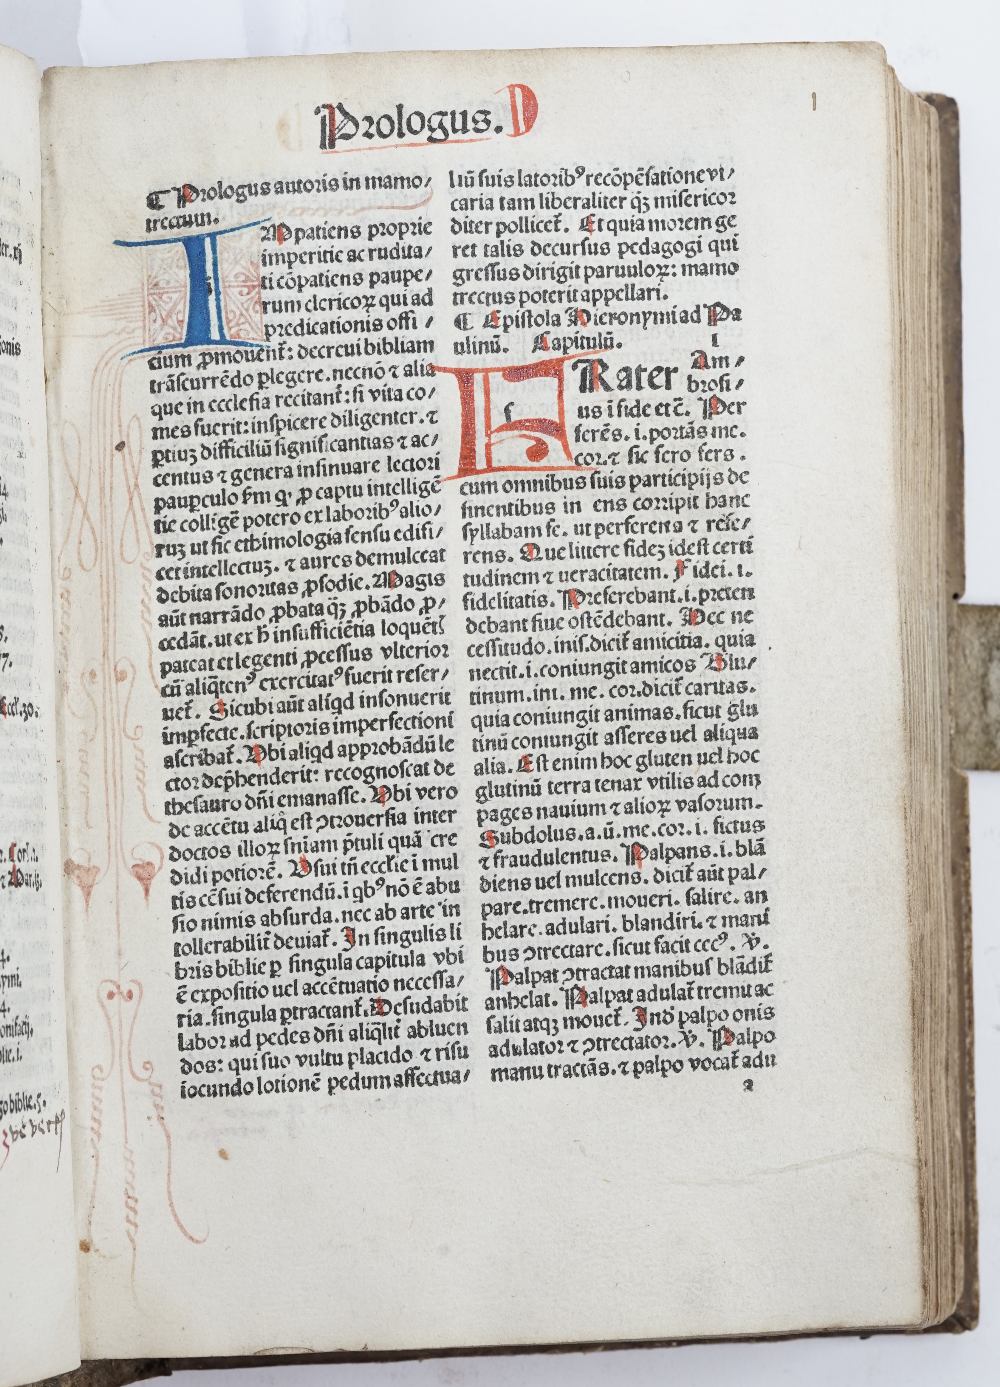 Prologus. D
1
¶ Prologus autoris in mamo/
trectum.
IMpatiens proprie
imperitie ac rudita/
ti cōpatiens paupe/
rum clericoꝝ qui ad
predicationis offi/
cium ꝓmouent̄: decreui bibliam
trāscurrēdo ꝑlegere. necnō ⁊ alia
que in ecclesia recitant̄: si vita co/
mes fuerit: inspicere diligenter. ⁊
ꝑtiuꝫ difficiliū significantias ⁊ ac/
centus ⁊ genera insinuare lectori
pauꝑculo fm ꝙ ꝓ captu intelligē
tie colligē potero ex laboribꝰ alio/
ruꝫ ut sic ethimologia sensu edifi/
cet intellectuꝫ. ⁊ aures demulceat
debita sonoritas ꝓsodie. Magis
aūt narrādo ꝓbata qꝫ ꝓbādo ꝓ/
cedāt. ut ex h̄ insufficiētia loquētꝭ
pateat et legenti ꝓcessus vlterior
cū aliqtenꝰ exercitatꝰ fuerit reser/
uet̄. Sicubi aūt aliqd insonuerit
imꝑfecte. scriptoris imperfectioni
ascribat̄. Vbi aliqd approbādū le
ctor dep̄henderit: recognoscat de
thesauro dn̄i emanasse. Vbi vero
de accētu aliq̄ est ↄtrouersia inter
doctos illoꝝ sniam ptuli quā cre
didi potiorē. Vsui tn̄ eccl'ie i mul
tis cēsui deferendū. i qbꝰ nō ē abu
sio nimis absurda. nec ab arte in
tollerabilit̄ deuiat̄. In singulis li
bris biblie ꝑ singula capitula vbi
ē expositio uel accētuatio necessa/
ria. singula ꝑtractant̄. Desudabit
labor ad pedes dn̄i aliqlit̄ abluen
dos: qui suo vultu placido ⁊ risu
iocundo lotionē pedum affectua/
liū suis latoribꝰ recōpēsatione vi/
caria tam liberaliter qꝫ misericor
diter pollicet̄. Et quia morem ge
ret talis decursus pedagogi qui
gressus dirigit paruuloꝝ: mamo
trectus poterit appellari.
¶ Epistola Hieronymi ad Pa
ulinū. Capitulū. I
FRater Am/
brosi/
us i fide et c̄. Per
ferēs. i. portās me.
cor. ⁊ sic fero fers.
cum omnibus suis participijs de
sinentibus in ens corripit hanc
syllabam fe. ut perferens ⁊ refe/
rens. Que littere fideꝫ id est certi
tudinem ⁊ ueracitatem. Fidei. i.
fidelitatis. Preferebant. i. preten
debant siue ostēdebant. Hec ne
cessitudo. inis. dicit̄ amicitia. quia
nectit. i. coniungit amicos Glu/
tinum. ini. me. cor. dicit̄ caritas.
quia coniungit animas. sicut glu
tinū coniungit asseres uel aliqua
alia. Est enim hoc gluten uel hoc
glutinū terra tenax vtilis ad com
pages nauium ⁊ alioꝝ vasorum.
Subdolus. a. ū. me. cor. i. fictus
⁊ fraudulentus. Palpans. i. blā
diens uel mulcens. dicit̄ aūt pal/
pare. tremere. moueri. salire. an
helare. adulari. blandiri. ⁊ mani
bus ↄtrectare. sicut facit cecꝰ. V.
Palpat ↄtractat manibus blādit̄
anhelat. Palpat adulat̄ tremit ac
salit atqꝫ mouet̄. Inde palpo onis
adulator ⁊ ↄtrectator. V. Palpo
manu tractās. ⁊ palpo vocat̄ adu
a